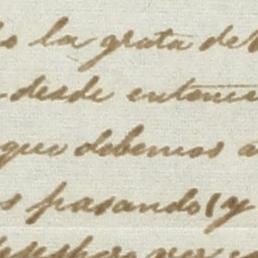 la grata de
desde entonces
que debemos a
pasando (y